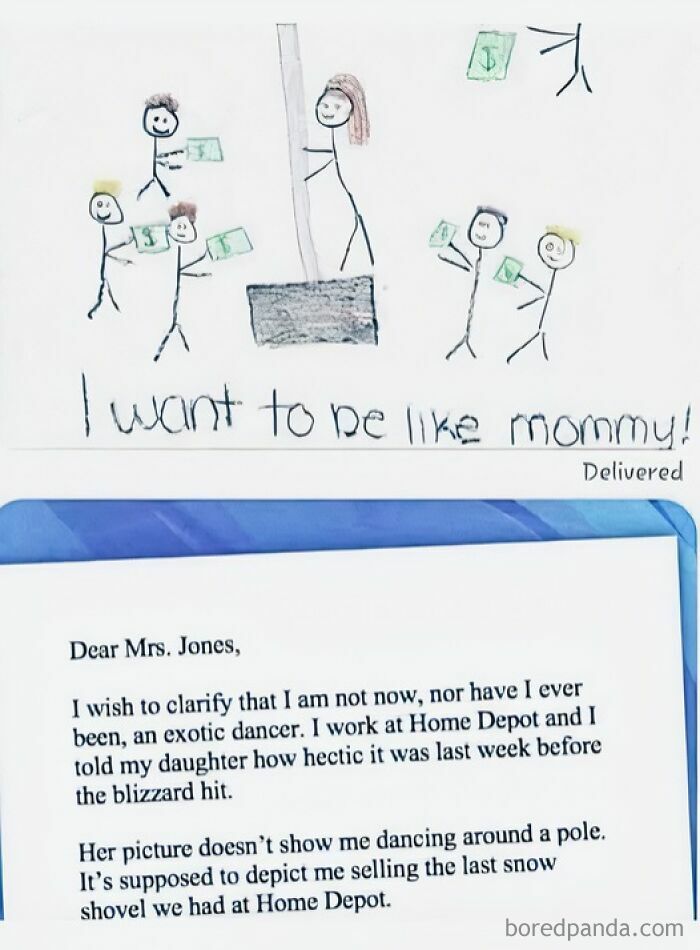 $
$
$
$
$
$
I want to be like mommy!
Delivered
Dear Mrs. Jones,
I wish to clarify that I am not now, nor have I ever
been, an exotic dancer. I work at Home Depot and I
told my daughter how hectic it was last week before
the blizzard hit.
Her picture doesn't show me dancing around a pole.
It's supposed to depict me selling the last snow
shovel we had at Home Depot.
boredpanda.com